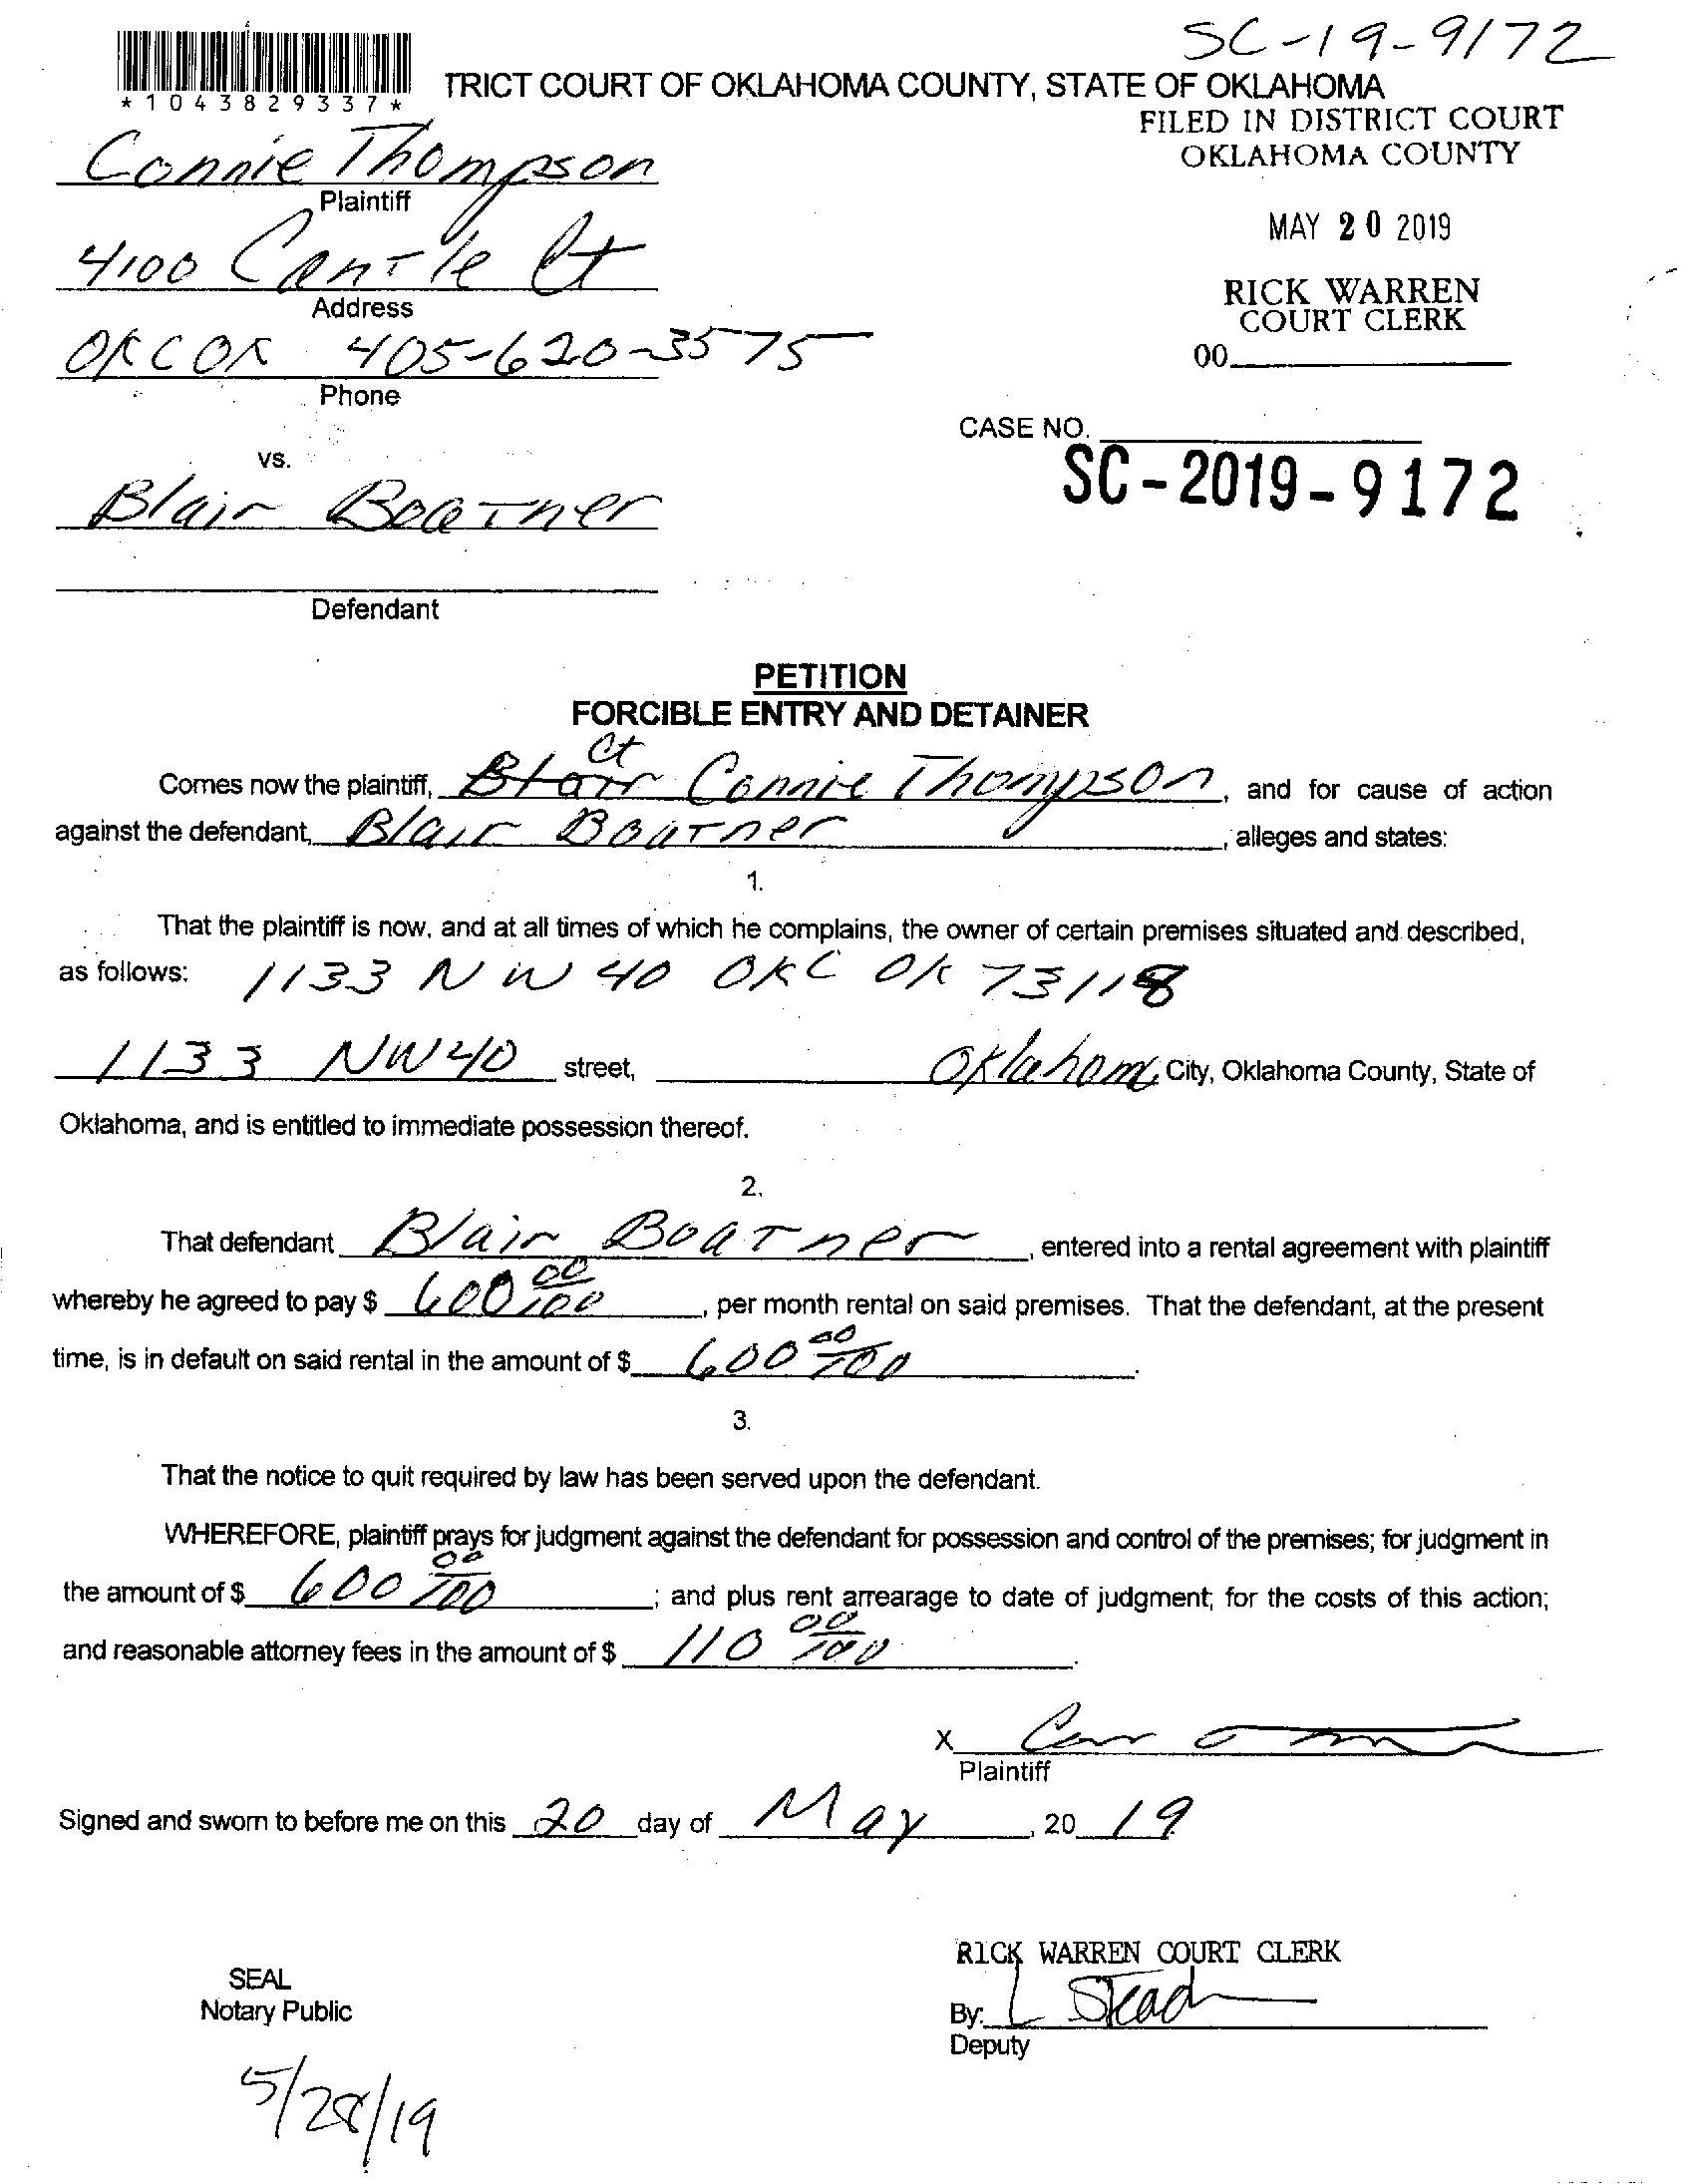 SC-19-9172
*1043829337*
TRICT COURT OF OKLAHOMA COUNTY, STATE OF OKLAHOMA
FILED IN DISTRICT COURT
OKLAHOMA COUNTY
Connie Thompson
Plaintiff
MAY 20 2019
4100 Cantle Ct
Address
RICK WARREN
COURT CLERK
OKC OK 405-620-3575
Phone
00
CASE NO.
SC-2019-9172
vs.
Blair Boatner
Defendant
PETITION
FORCIBLE ENTRY AND DETAINER
Ct
Comes now the plaintiff, Blair Connie Thompson, and for cause of action
against the defendant, Blair Boatner, alleges and states:
1.
That the plaintiff is now, and at all times of which he complains, the owner of certain premises situated and described,
as follows: 1133 NW 40 OKC OK 73118
1133 NW 40 street, Oklahoma City, Oklahoma County, State of
Oklahoma, and is entitled to immediate possession thereof.
2.
That defendant Blair Boatner, entered into a rental agreement with plaintiff
whereby he agreed to pay $ 600 00/100, per month rental on said premises. That the defendant, at the present
time, is in default on said rental in the amount of $ 600 00/100.
3.
That the notice to quit required by law has been served upon the defendant.
WHEREFORE, plaintiff prays for judgment against the defendant for possession and control of the premises; for judgment in
the amount of $ 600 00/100; and plus rent arrearage to date of judgment; for the costs of this action;
and reasonable attorney fees in the amount of $ 110 00/100.
X
Plaintiff
Signed and sworn to before me on this 20 day of May, 20 19
RICK WARREN COURT CLERK
SEAL
Notary Public
By: L Stead
Deputy
5/28/19